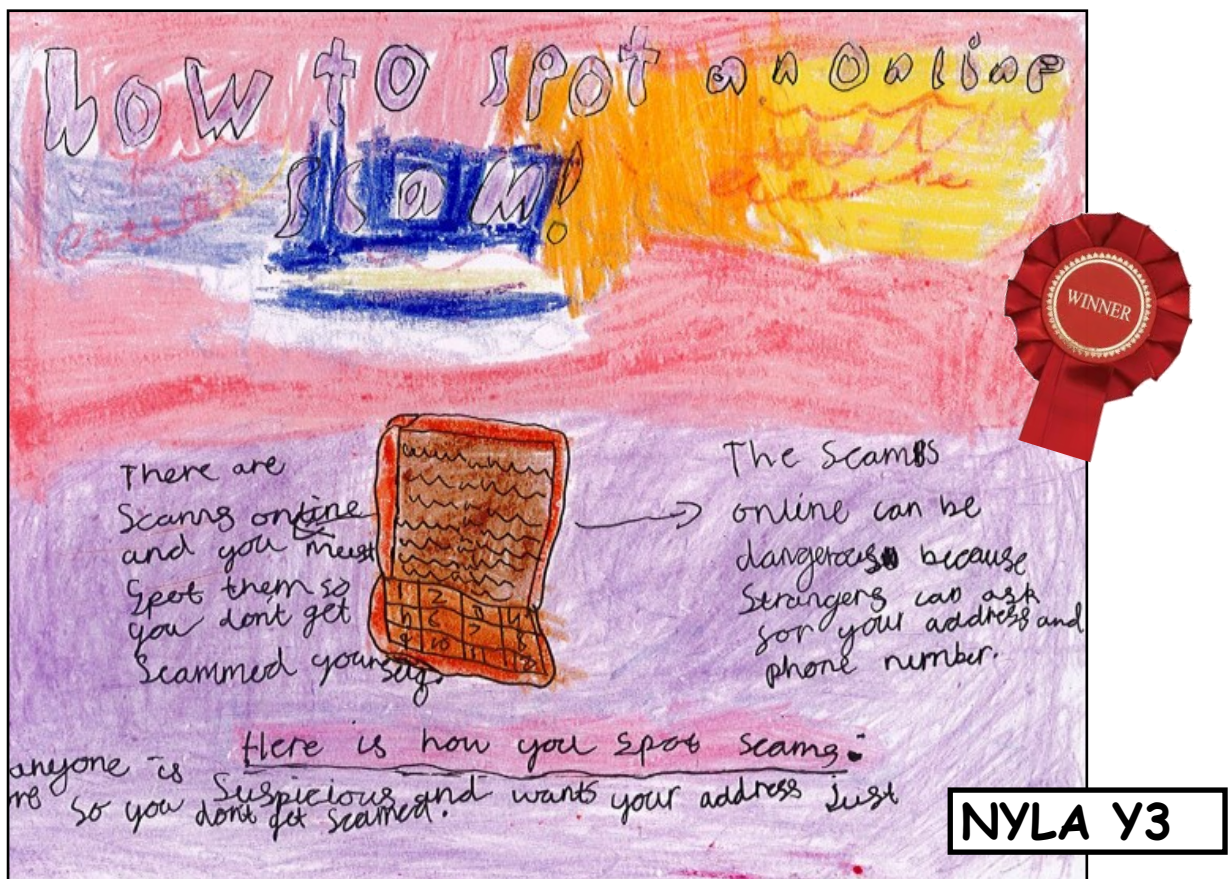 how to spot an online
scam!
WINNER
There are
Scams online
and you must
Spot them so
you dont get
Scammed yourself.
1 2 3 4
5 6 7 8
9 10 11 12
The Scams
online can be
dangerous because
Strangers can ask
for your address and
phone number.
Here is how you Spot Scams:
anyone is Suspicious and wants your address Just
So you dont get Scamed.
NYLA Y3